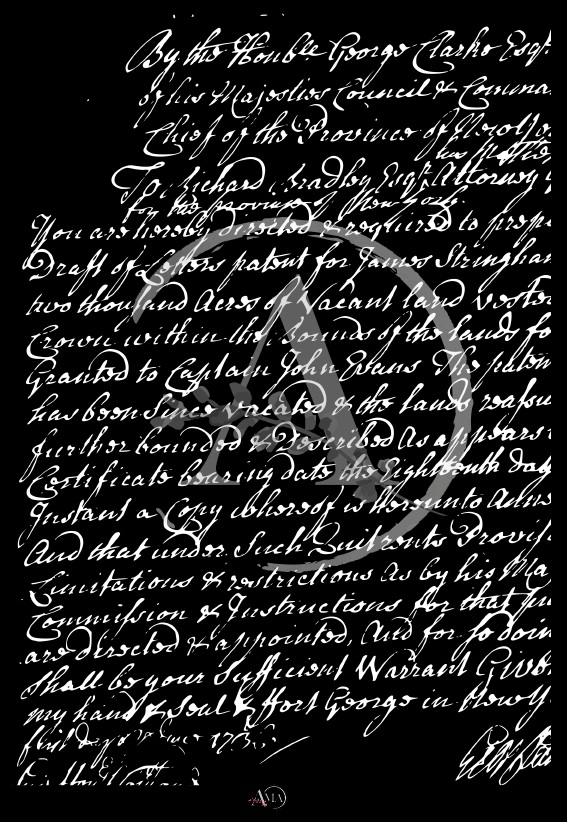 By the Honble George Clarke Esqr
of his Majesties Council & Comma
Chief of the Province of New Yo
his Matie
To Richard Bradley Esqr Attorney
for the province of New York.
You are hereby directed & required to prep
Draft of Letters patent for James Stringham
two thousand Acres of Vacant land vested
Crown within the bounds of the lands fo
Granted to Captain John Evans The paten
has been Since vacated & the lands reassu
further bounded & Described As appears
Certificate bearing date the Eighteenth day
Instant a Copy whereof is Hereunto Anne
And that under Such Quitrents Provis
Limitations & restrictions As by his Ma
Commission & Instructions for that pu
are directed & appointed, And for so doin
Shall be your Sufficient Warrant Given
my hand & Seal at Fort George in New Y
first day of 173
A
AMA